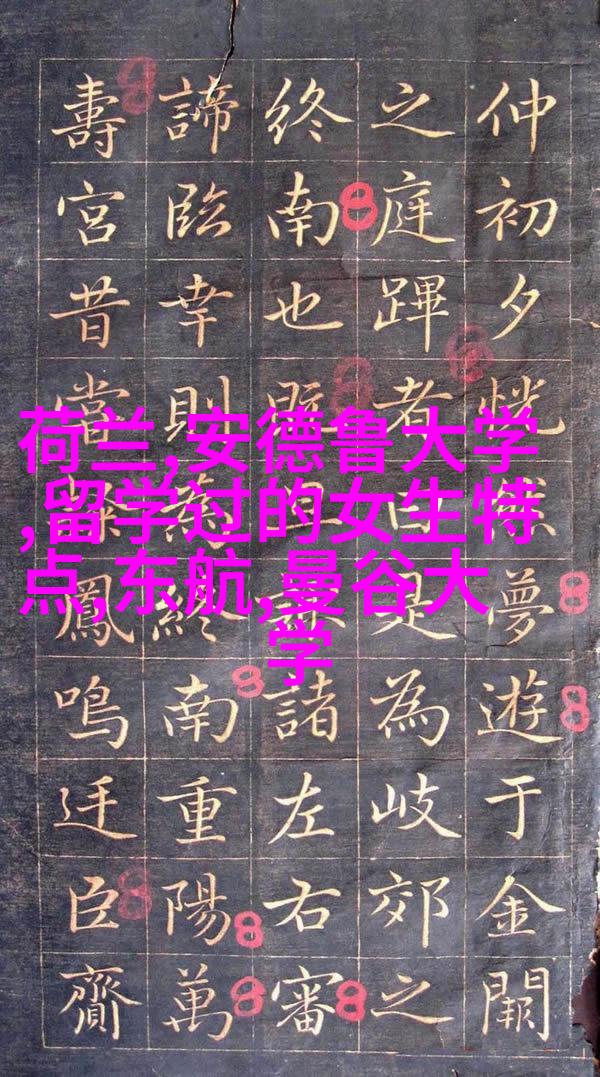 荷兰,安德鲁大学
,留学过的女生特
点,东航,曼谷大
学
仲初夕恍然夢遊于金闕
之庭蹕者曰是為岐郊之
終南也既諸左右審
諦臨幸則終南重陽萬
壽宮昔當鳳鳴迋臣齎